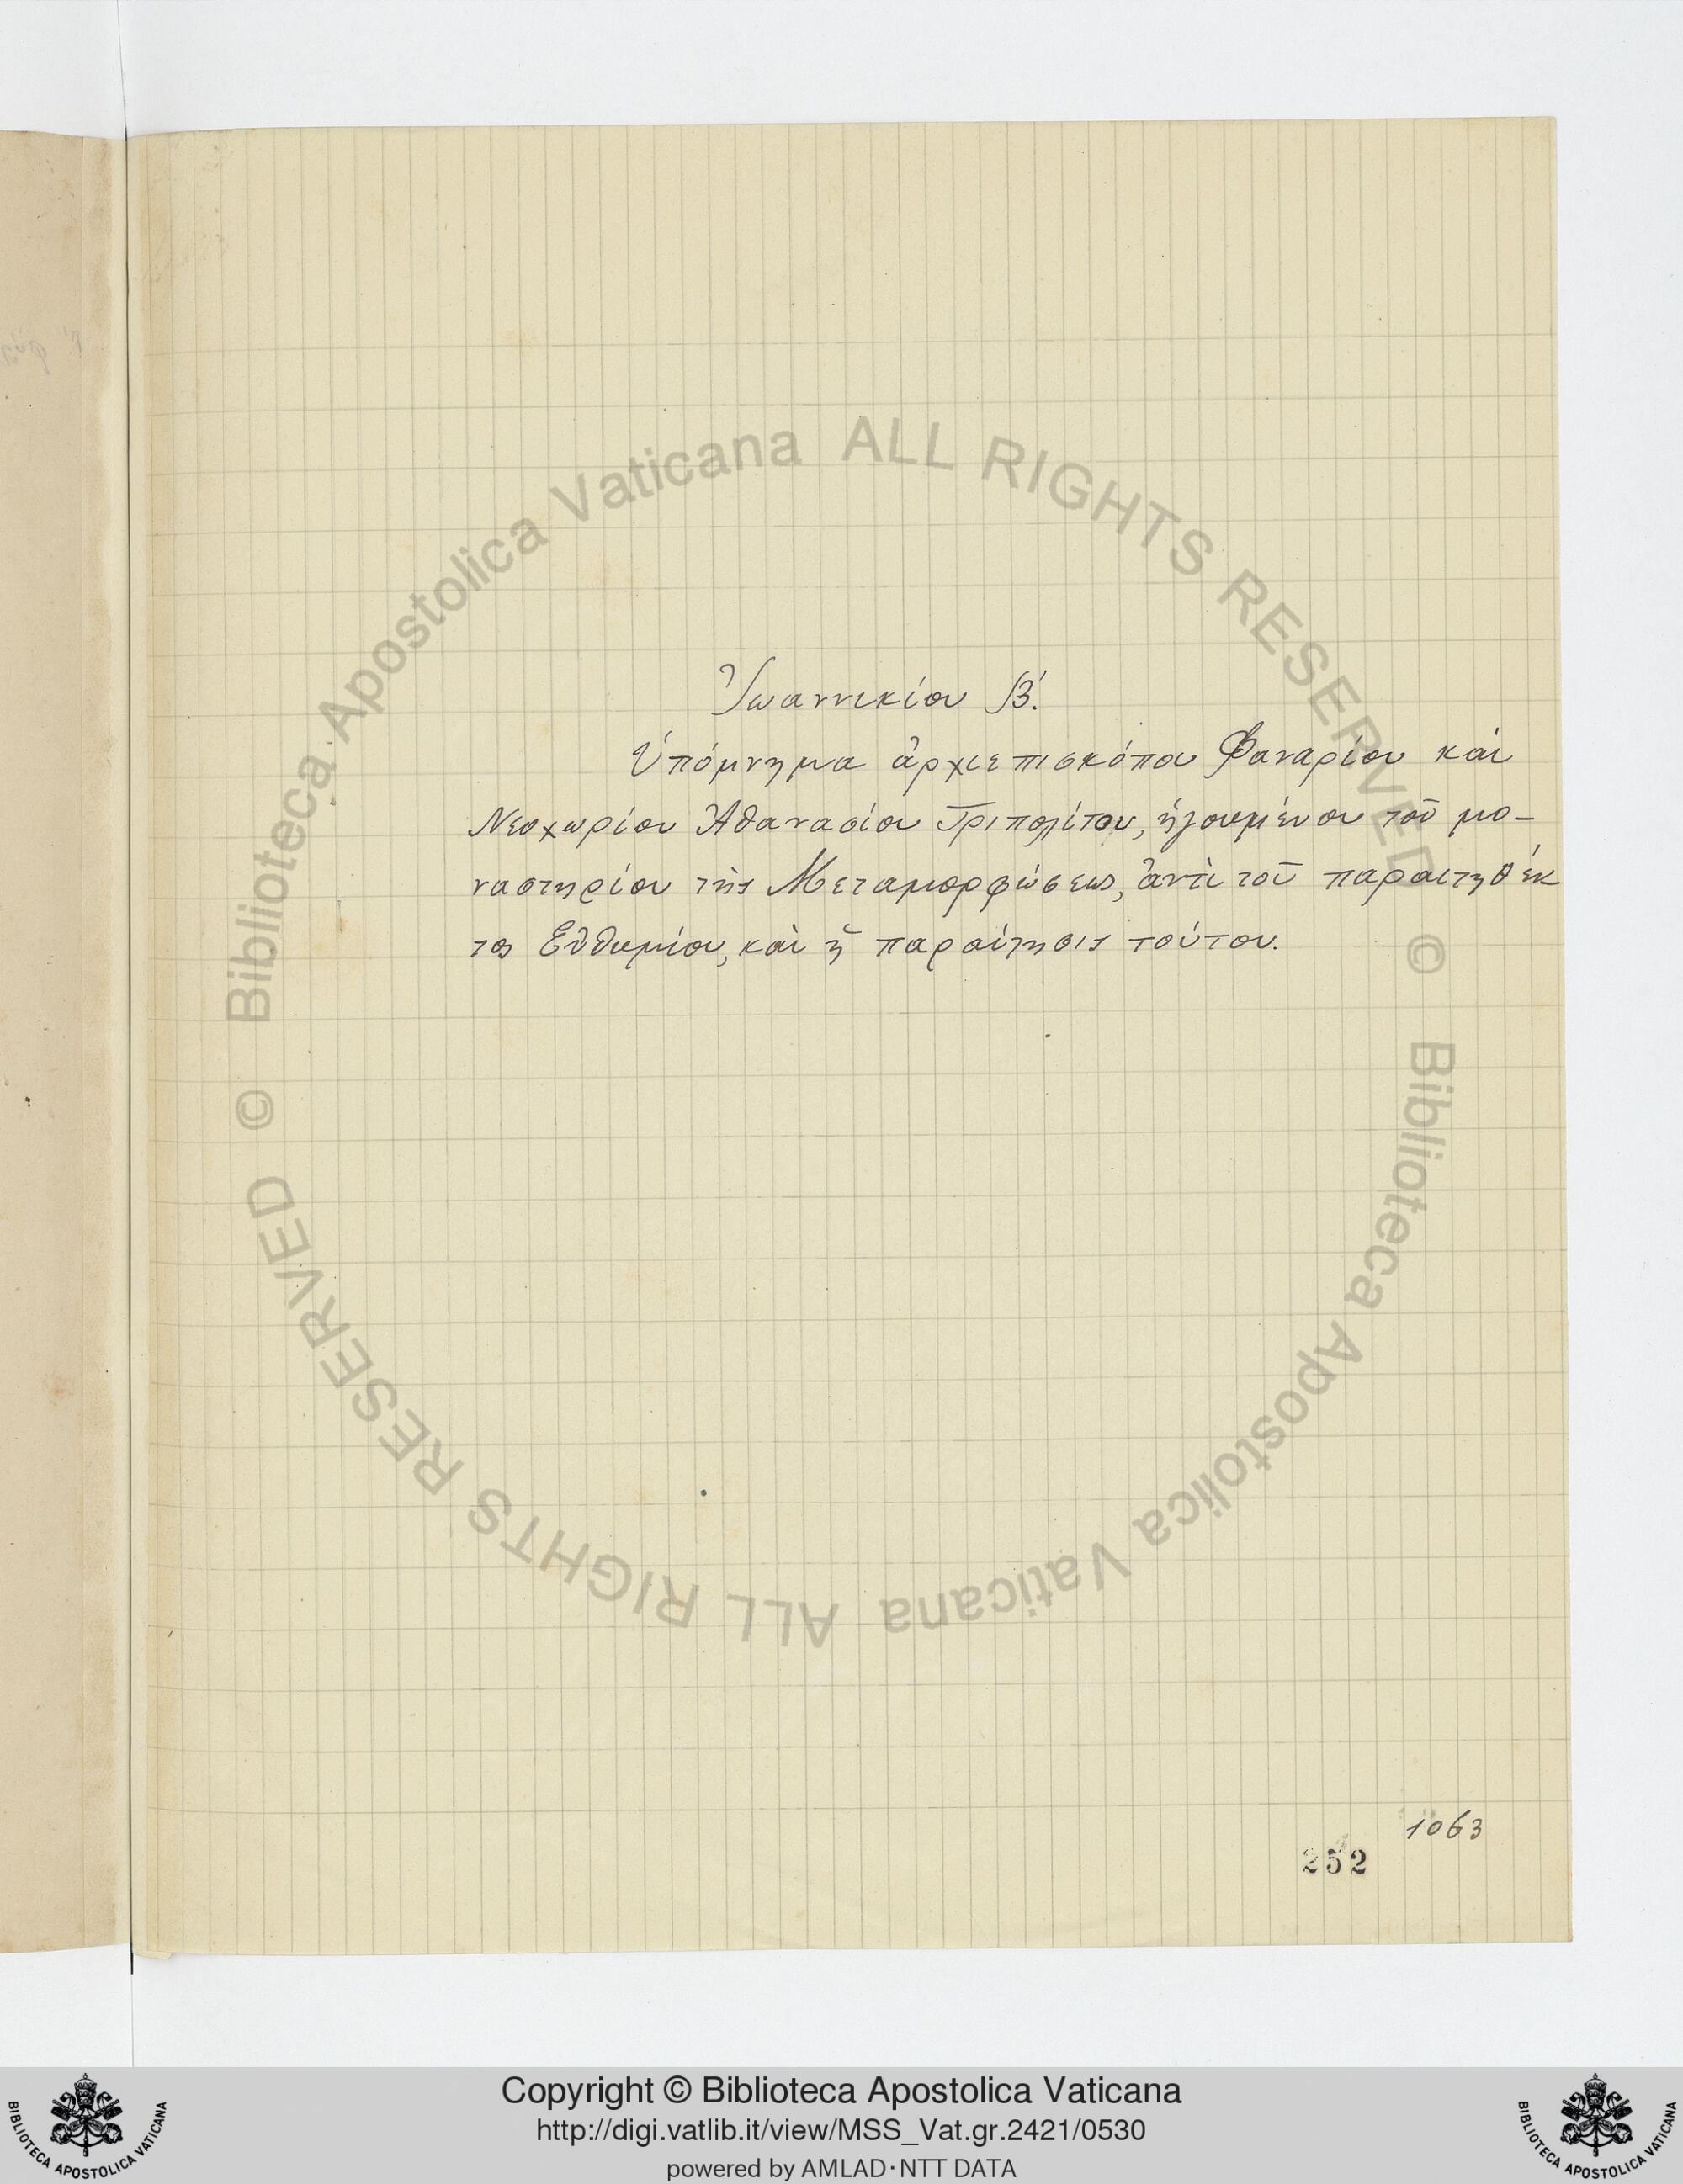 Ἰωαννικίου Β΄.
Ὑπόμνημα ἀρχιεπισκόπου Φαναρίου καὶ
Νεοχωρίου Ἀθανασίου Τριπολίτου, ἡγουμένου τοῦ μο-
ναστηρίου τῆς Μεταμορφώσεως, ἀντὶ τοῦ παραιτηθέν
τος Εὐθυμίου, καὶ ἡ παραίτησις τούτου.
1063
252
Biblioteca Apostolica Vaticana ALL RIGHTS RESERVED ©
Biblioteca Apostolica Vaticana ALL RIGHTS RESERVED ©
Copyright © Biblioteca Apostolica Vaticana
http://digi.vatlib.it/view/MSS_Vat.gr.2421/0530
powered by AMLAD·NTT DATA
BIBLIOTECA APOSTOLICA VATICANA
BIBLIOTECA APOSTOLICA VATICANA